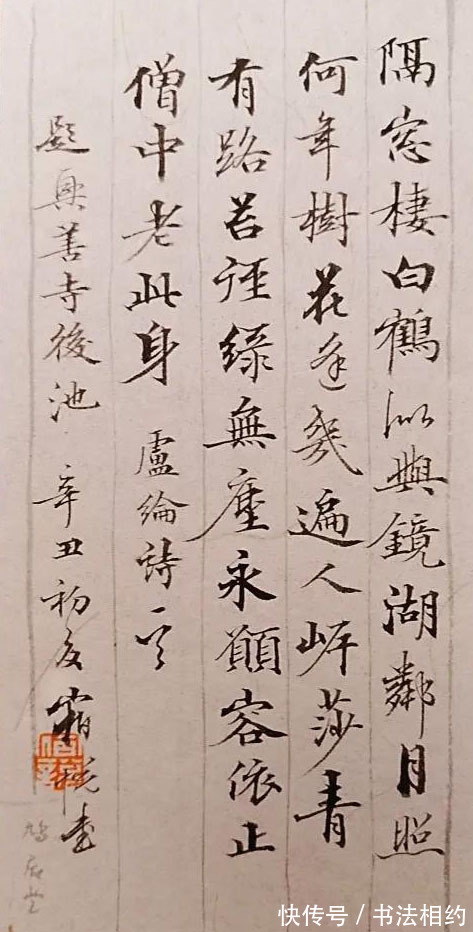 隔窓棲白鶴似與鏡湖鄰月照
何年樹花逢幾遍人岸莎青
有路苔徑綠無塵永願容依止
僧中老此身 盧綸詩一首
題興善寺後池 辛丑初夏 書
鳩居堂
快传号 / 书法相约